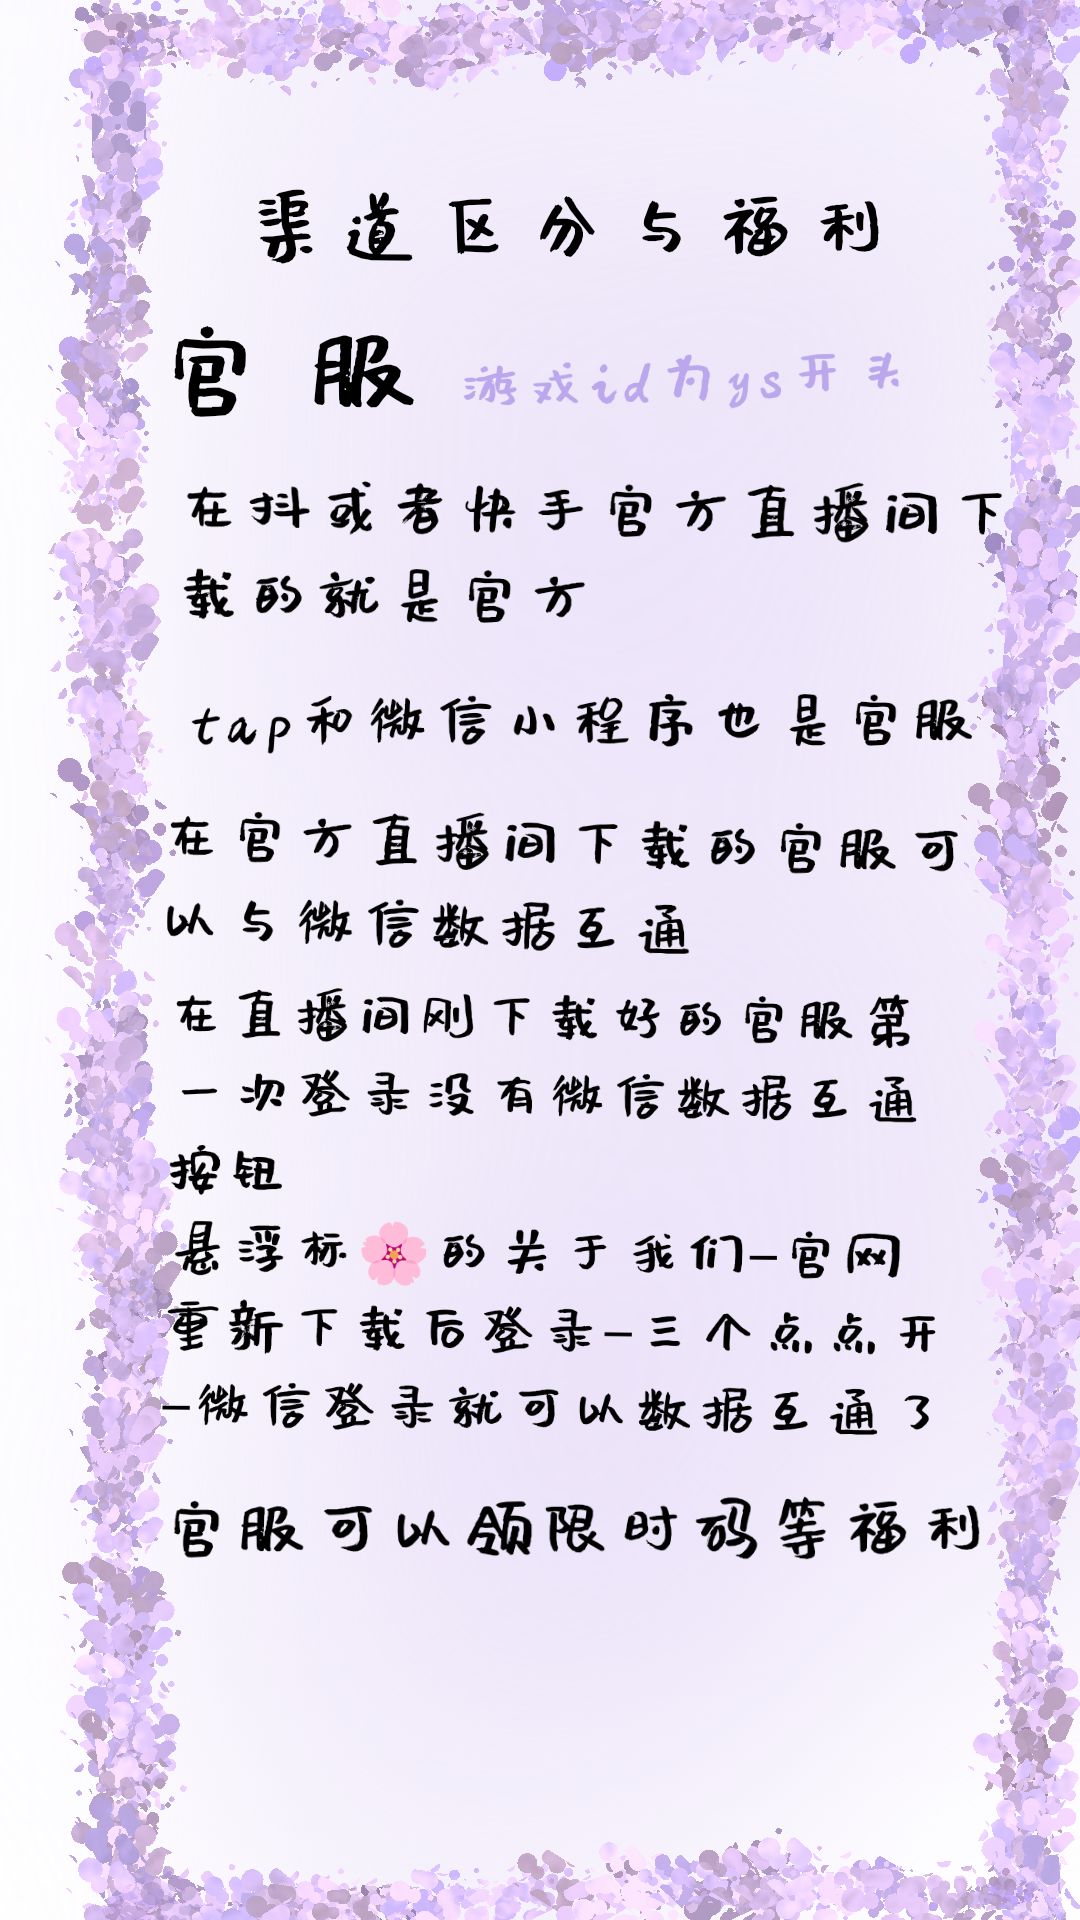 渠道区分与福利
官服 游戏id为ys开头
在抖或者快手官方直播间下
载的就是官方
tap和微信小程序也是官服
在官方直播间下载的官服可
以与微信数据互通
在直播间刚下载好的官服第
一次登录没有微信数据互通
按钮
悬浮标🌸的关于我们-官网
重新下载后登录-三个点点开
-微信登录就可以数据互通了
官服可以领限时码等福利